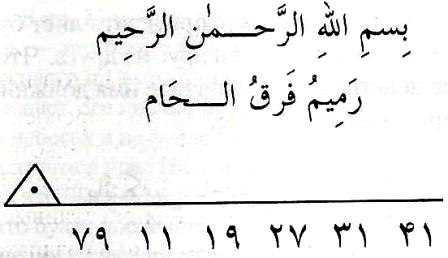 بِسمِ اللهِ الرَّحـــمٰنِ الرَّحِيم
رَمِيمُ فَرقُ الـــحَام
۴١ ٣١ ٢٧ ١٩ ١١ ٧٩